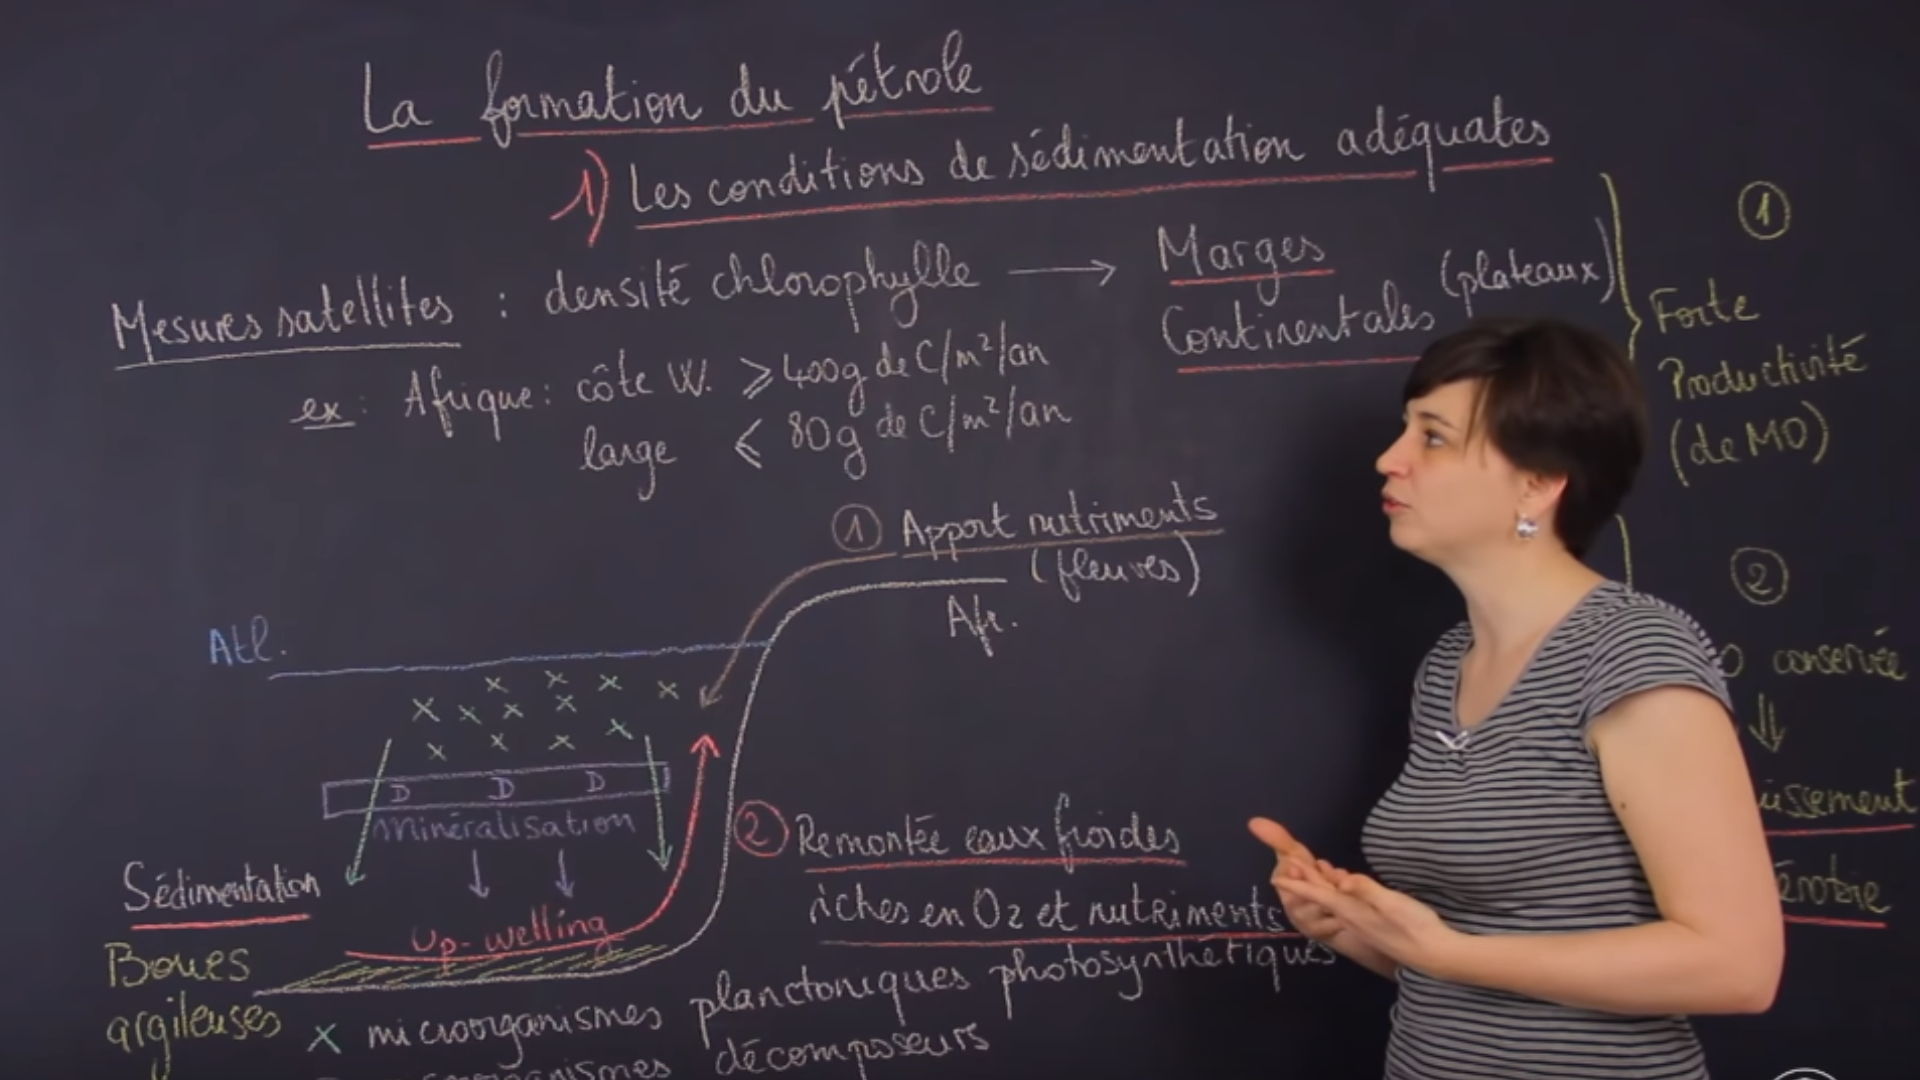 La formation du pétrole
1) Les conditions de sédimentation adéquates
Mesures satellites : densité chlorophylle → Marges
Continentales (plateaux)
ex : Afrique : côte W. ⩾ 400g de C/m²/an
large ⩽ 80g de C/m²/an
① Apport nutriments
(fleuves)
Afr.
Atl.
x x x x
x x x x
x x x x
D D D
Minéralisation
Sédimentation
Up-welling
Boues
argileuses
② Remontée eaux froides
riches en O2 et nutriments
x microorganismes planctoniques photosynthétiques
décomposeurs
①
Forte
Productivité
(de MO)
②
conservée
⇓